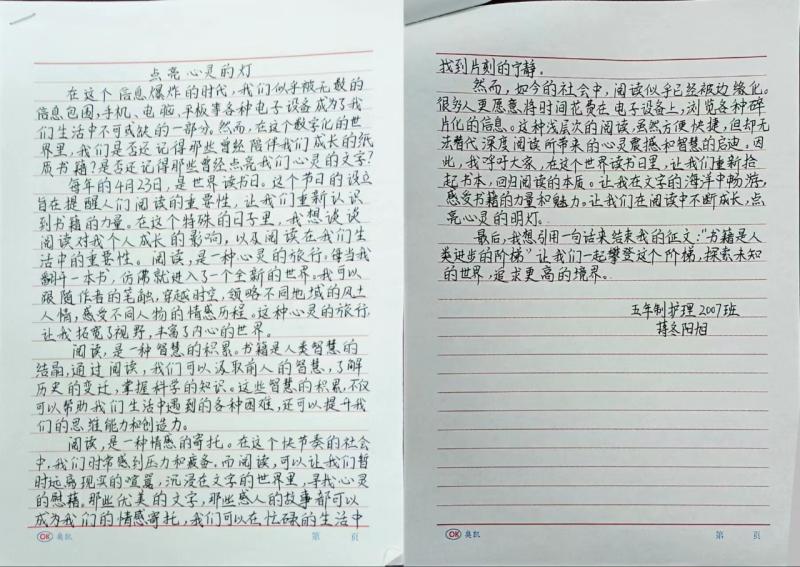 点亮心灵的灯
在这个信息爆炸的时代，我们似乎被无数的
信息包围，手机、电脑、平板等各种电子设备成为了我
们生活中不可或缺的一部分。然而，在这个数字化的世
界里，我们是否还记得那些曾经陪伴我们成长的纸
质书籍？是否还记得那些曾经点亮我们心灵的文字？
每年的4月23日，是世界读书日。这个节日的设立
旨在提醒人们阅读的重要性，让我们重新认识
到书籍的力量。在这个特殊的日子里，我想谈谈
阅读对我个人成长的影响，以及阅读在我们生
活中的重要性。阅读，是一种心灵的旅行，每当我
翻开一本书，仿佛就进入了一个全新的世界。我可以
跟随作者的笔触，穿越时空，领略不同地域的风土
人情，感受不同人物的情感历程。这种心灵的旅行，
让我拓宽了视野，丰富了内心的世界。
阅读，是一种智慧的积累。书籍是人类智慧的
结晶，通过阅读，我们可以汲取前人的智慧，了解
历史的变迁，掌握科学的知识。这些智慧的积累，不仅
可以帮助我们生活中遇到的各种困难，还可以提升我
们的思维能力和创造力。
阅读，是一种情感的寄托。在这个快节奏的社会
中，我们时常感到压力和疲备。而阅读，可以让我们暂
时远离现实的喧嚣，沉浸在文字的世界里，寻找心灵
的慰藉。那些优美的文字，那些感人的故事都可以
成为我们的情感寄托，我们可以在忙碌的生活中
OK 奥凯
第 页
找到片刻的宁静。
然而，如今的社会中，阅读似乎已经被边缘化。
很多人更愿意将时间花费在电子设备上，浏览各种碎
片化的信息。这种浅层次的阅读，虽然方便快捷，但却无
法替代深度阅读所带来的心灵震撼和智慧的启迪。因
此，我呼吁大家，在这个世界读书日里，让我们重新拾
起书本，回归阅读的本质。让我在文字的海洋中畅游，
感受书籍的力量和魅力。让我们在阅读中不断成长，点
亮心灵的明灯。
最后，我想引用一句话来结束我的征文：“书籍是人
类进步的阶梯”让我们一起攀登这个阶梯，探索未知
的世界，追求更高的境界。
五年制护理2007班
蒋冬阳旭
OK 奥凯
第 页